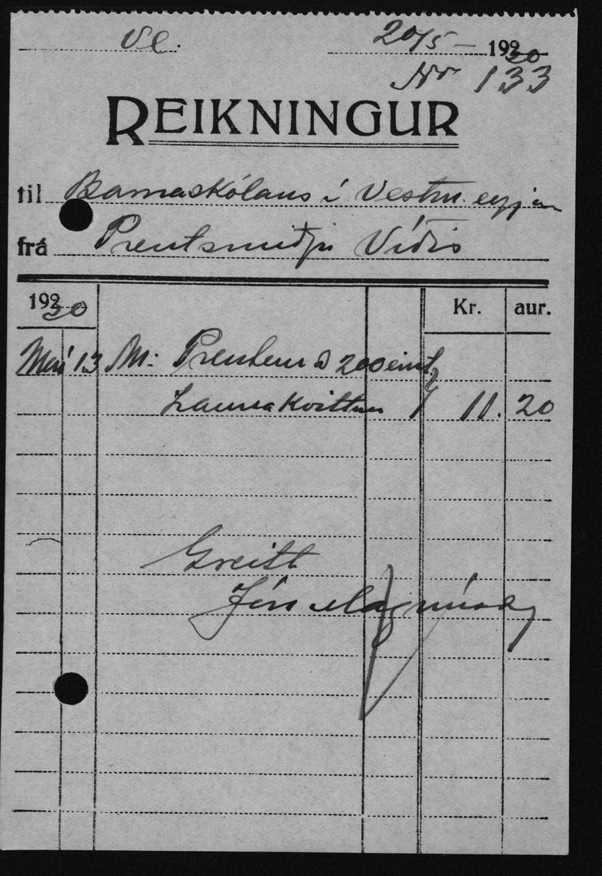 Ve. 20/5 — 1930
Nr 133
REIKNINGUR
til Barnaskólans í Vestm.eyjum
frá Prentsmiðju Víðis
1930 Kr. aur.
Maí 13 M: Prentun á 200 eint.
Launakvittun 11. 20
Greitt
Jón Magnússon